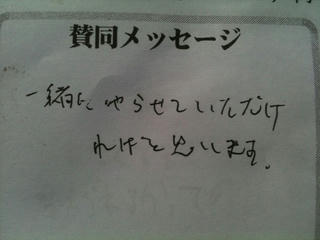 賛同メッセージ
一緒にやらせていただけ
ればと思います。